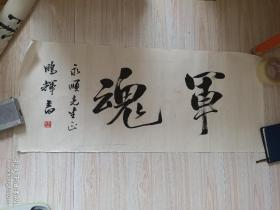 軍魂
永順先生正
鵬輝書